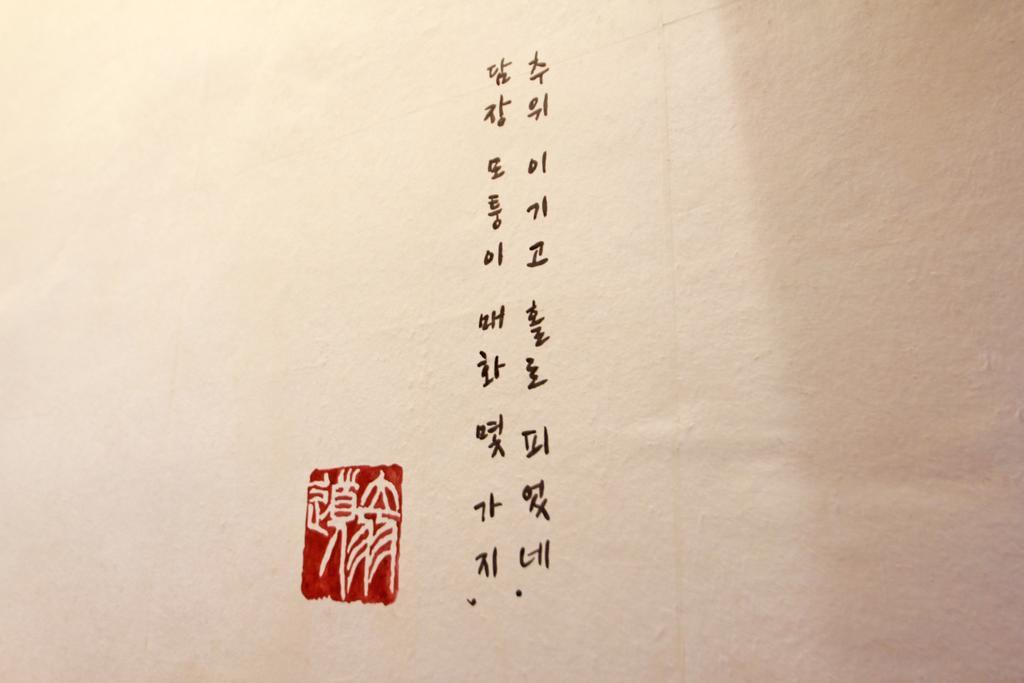 담장 모퉁이 매화 몇 가지,
추위 이기고 홀로 피었네.